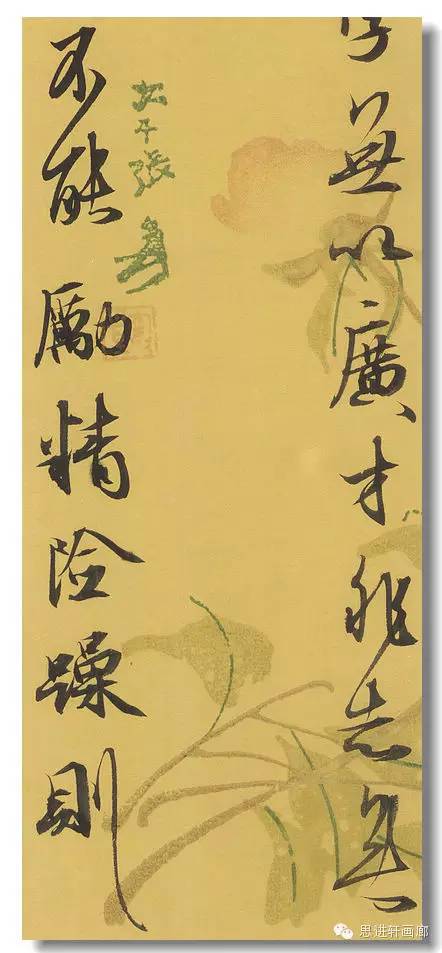 無以廣才非志無
大千張爰
不能勵精险躁則
思进轩画廊